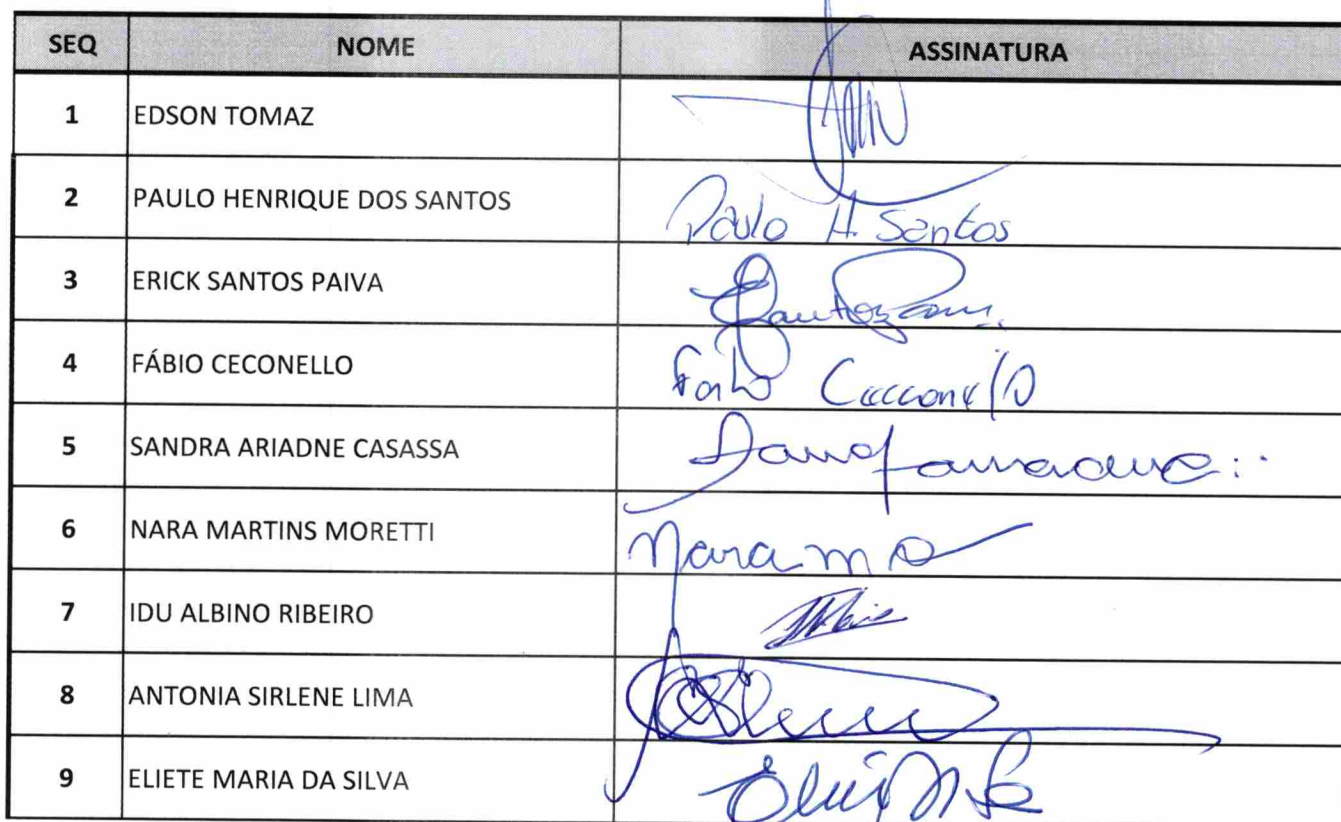 SEQ NOME ASSINATURA
1 EDSON TOMAZ
2 PAULO HENRIQUE DOS SANTOS Paulo H. Santos
3 ERICK SANTOS PAIVA
4 FÁBIO CECONELLO
5 SANDRA ARIADNE CASASSA
6 NARA MARTINS MORETTI Nara
7 IDU ALBINO RIBEIRO
8 ANTONIA SIRLENE LIMA
9 ELIETE MARIA DA SILVA